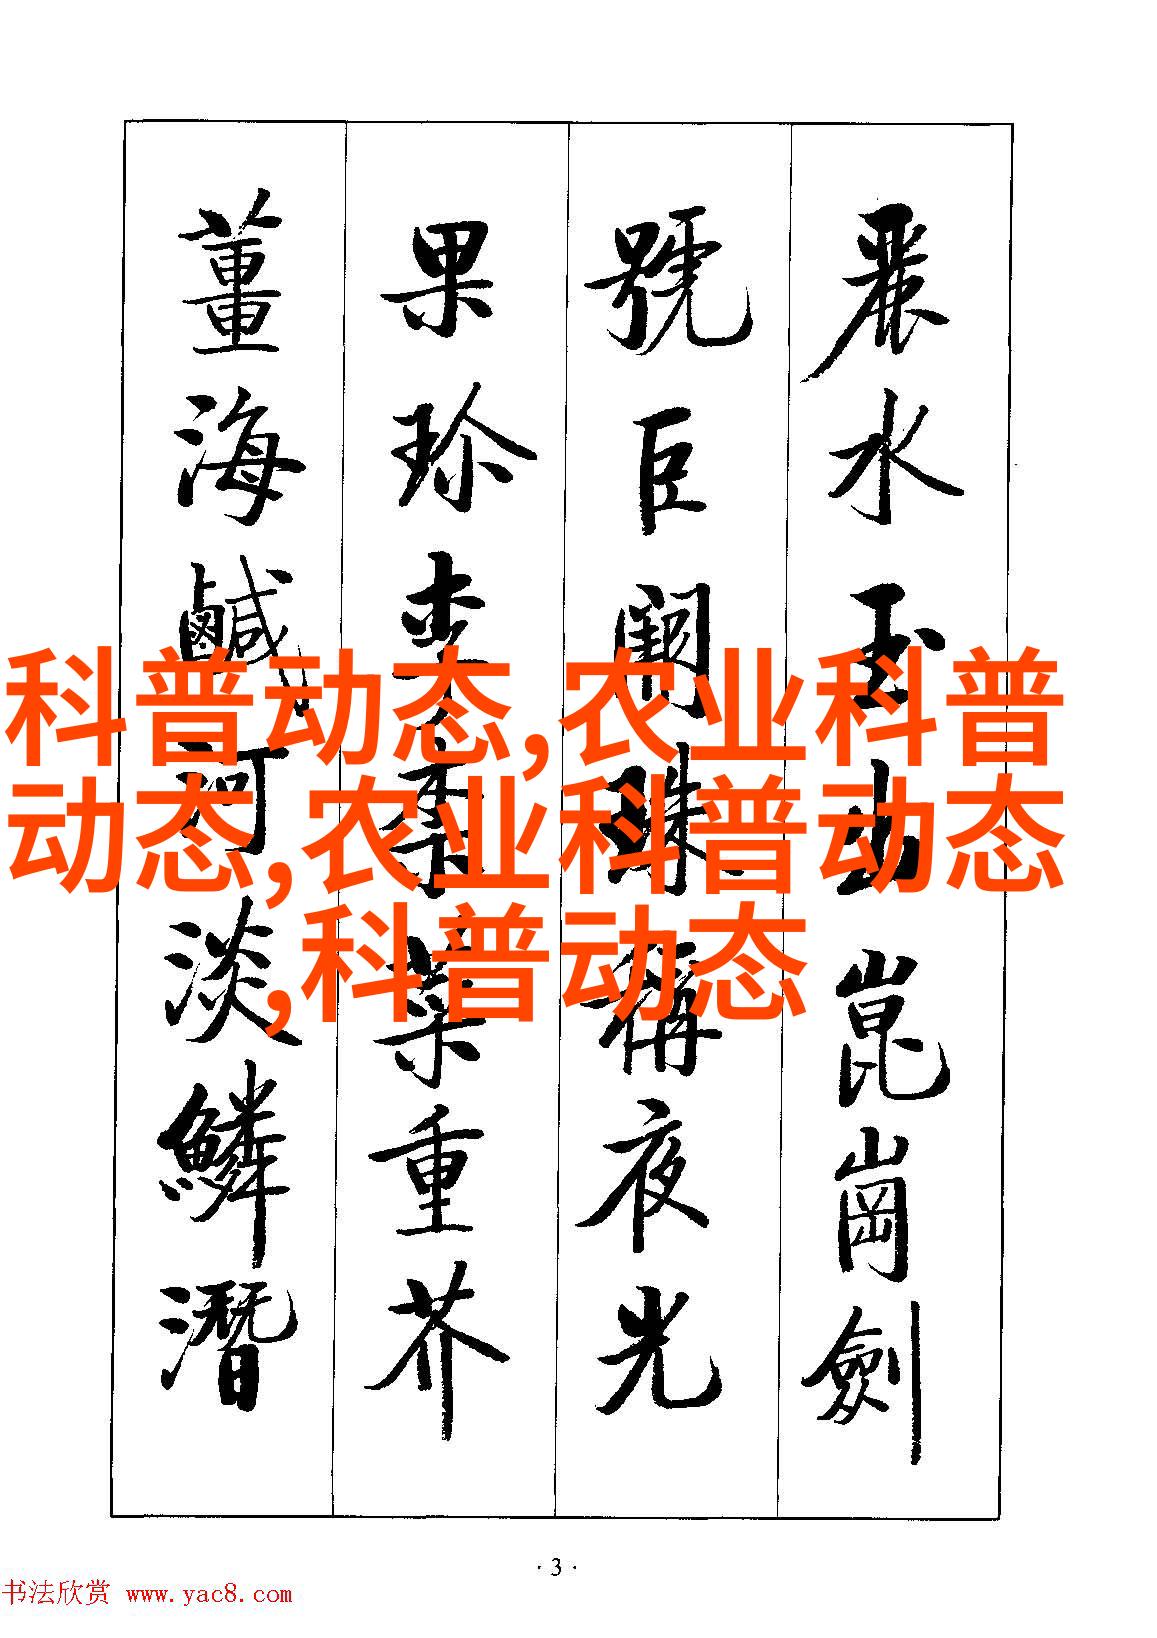 麗水玉出崑崗劍
號巨闕珠稱夜光
果珍李柰菜重芥
薑海鹹河淡鱗潛
科普动态,农业科普
动态,农业科普动态
,科普动态
·3·
书法欣赏 www.yac8.com